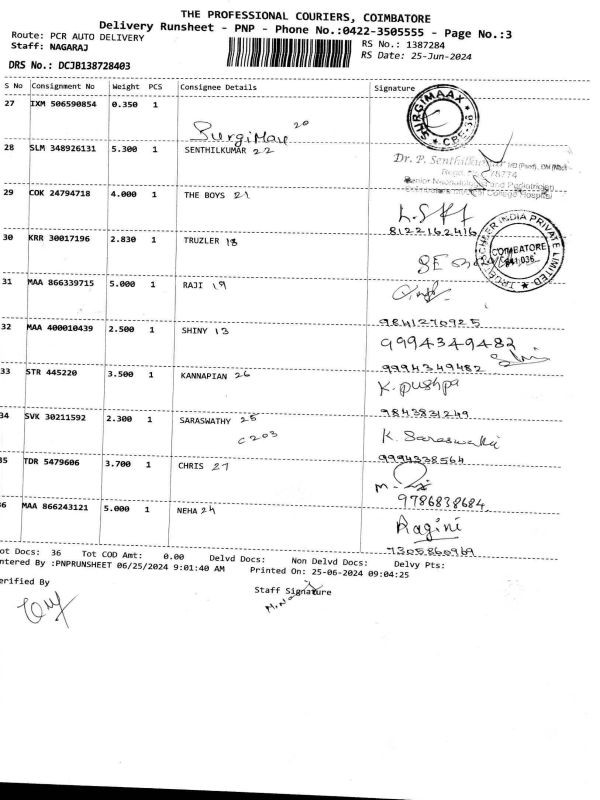 THE PROFESSIONAL COURIERS, COIMBATORE
Delivery Runsheet - PNP - Phone No.:0422-3505555 - Page No.:3
Route: PCR AUTO DELIVERY
RS No.: 1387284
Staff: NAGARAJ
RS Date: 25-Jun-2024
DRS No.: DCJB138728403
S No Consignment No Weight PCS Consignee Details Signature
27 IXM 506590854 0.350 1
SurgiMax 20
SURGIMAAX
28 SLM 348926131 5.300 1 SENTHILKUMAR 22
Dr. P. Senthilkumar
29 COK 24794718 4.000 1 THE BOYS 21
8122162416
30 KRR 30017196 2.830 1 TRUZLER 18
INDIA PRIVATE LIMITED
COIMBATORE
641 036
31 MAA 866339715 5.000 1 RAJI 19
9841270925
32 MAA 400010439 2.500 1 SHINY 13
9994349482
9994349482
33 STR 445220 3.500 1 KANNAPIAN 26
K. pushpa
9843831249
34 SVK 30211592 2.300 1 SARASWATHY 25
C203
K. Saraswathi
9994338564
35 TDR 5479606 3.700 1 CHRIS 27
9786838684
36 MAA 866243121 5.000 1 NEHA 24
Ragini
7305860969
ot Docs: 36 Tot COD Amt: 0.00 Delvd Docs: Non Delvd Docs: Delvy Pts:
ntered By :PNPRUNSHEET 06/25/2024 9:01:40 AM Printed On: 25-06-2024 09:04:25
erified By
Staff Signature